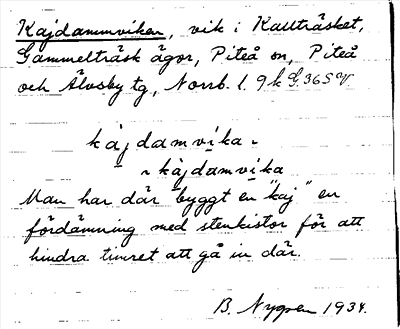 Kajdammviken, vik i Kallträsket,
Gammelträsk ägor, Piteå sn, Piteå
och Älvsby tg, Norrb. l. 9 k G. 36 SV
kàjdamvika ~
~ kàjdamvika
Man har där byggt en "kaj" en
fördämning med stenkistor för att
hindra timret att gå in där.
B. Nygren 1934.